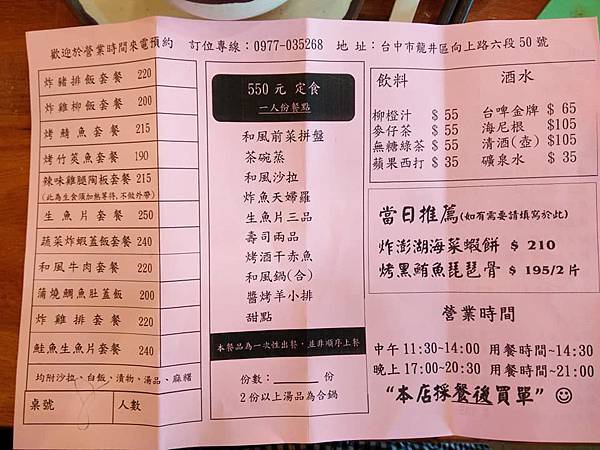 歡迎於營業時間來電預約　訂位專線：0977-035268　地 址：台中市龍井區向上路六段50號
炸豬排飯套餐 220
炸雞柳飯套餐 200
烤鯖魚套餐 215
烤竹筴魚套餐 190
辣味雞腿陶板套餐 215
(此為生食須加熱等待,不做外帶)
生魚片套餐 250
蔬菜炸蝦蓋飯套餐 240
和風牛肉套餐 220
蒲燒鯛魚肚蓋飯 200
炸雞排套餐 220
鮭魚生魚片套餐 240
均附沙拉、白飯、漬物、湯品、麻糬
桌號　人數
550元 定食
一人份餐點
和風前菜拼盤
茶碗蒸
和風沙拉
炸魚天婦羅
生魚片三品
壽司兩品
烤酒干赤魚
和風鍋(合)
醬烤羊小排
甜點
本餐品為一次性出餐，並非順序上餐
份數：______ 份
2份以上湯品為合鍋
飲料
柳橙汁 $ 55
麥仔茶 $ 55
無糖綠茶 $ 55
蘋果西打 $ 35
酒水
台啤金牌 $ 65
海尼根 $105
清酒(壺) $105
礦泉水 $ 35
當日推薦(如有需要請填寫於此)
炸澎湖海菜蝦餅 $ 210
烤黑鮪魚琵琶骨 $ 195/2片
營業時間
中午 11:30~14:00 用餐時間~14:30
晚上 17:00~20:30 用餐時間~21:00
“本店採餐後買單”☺